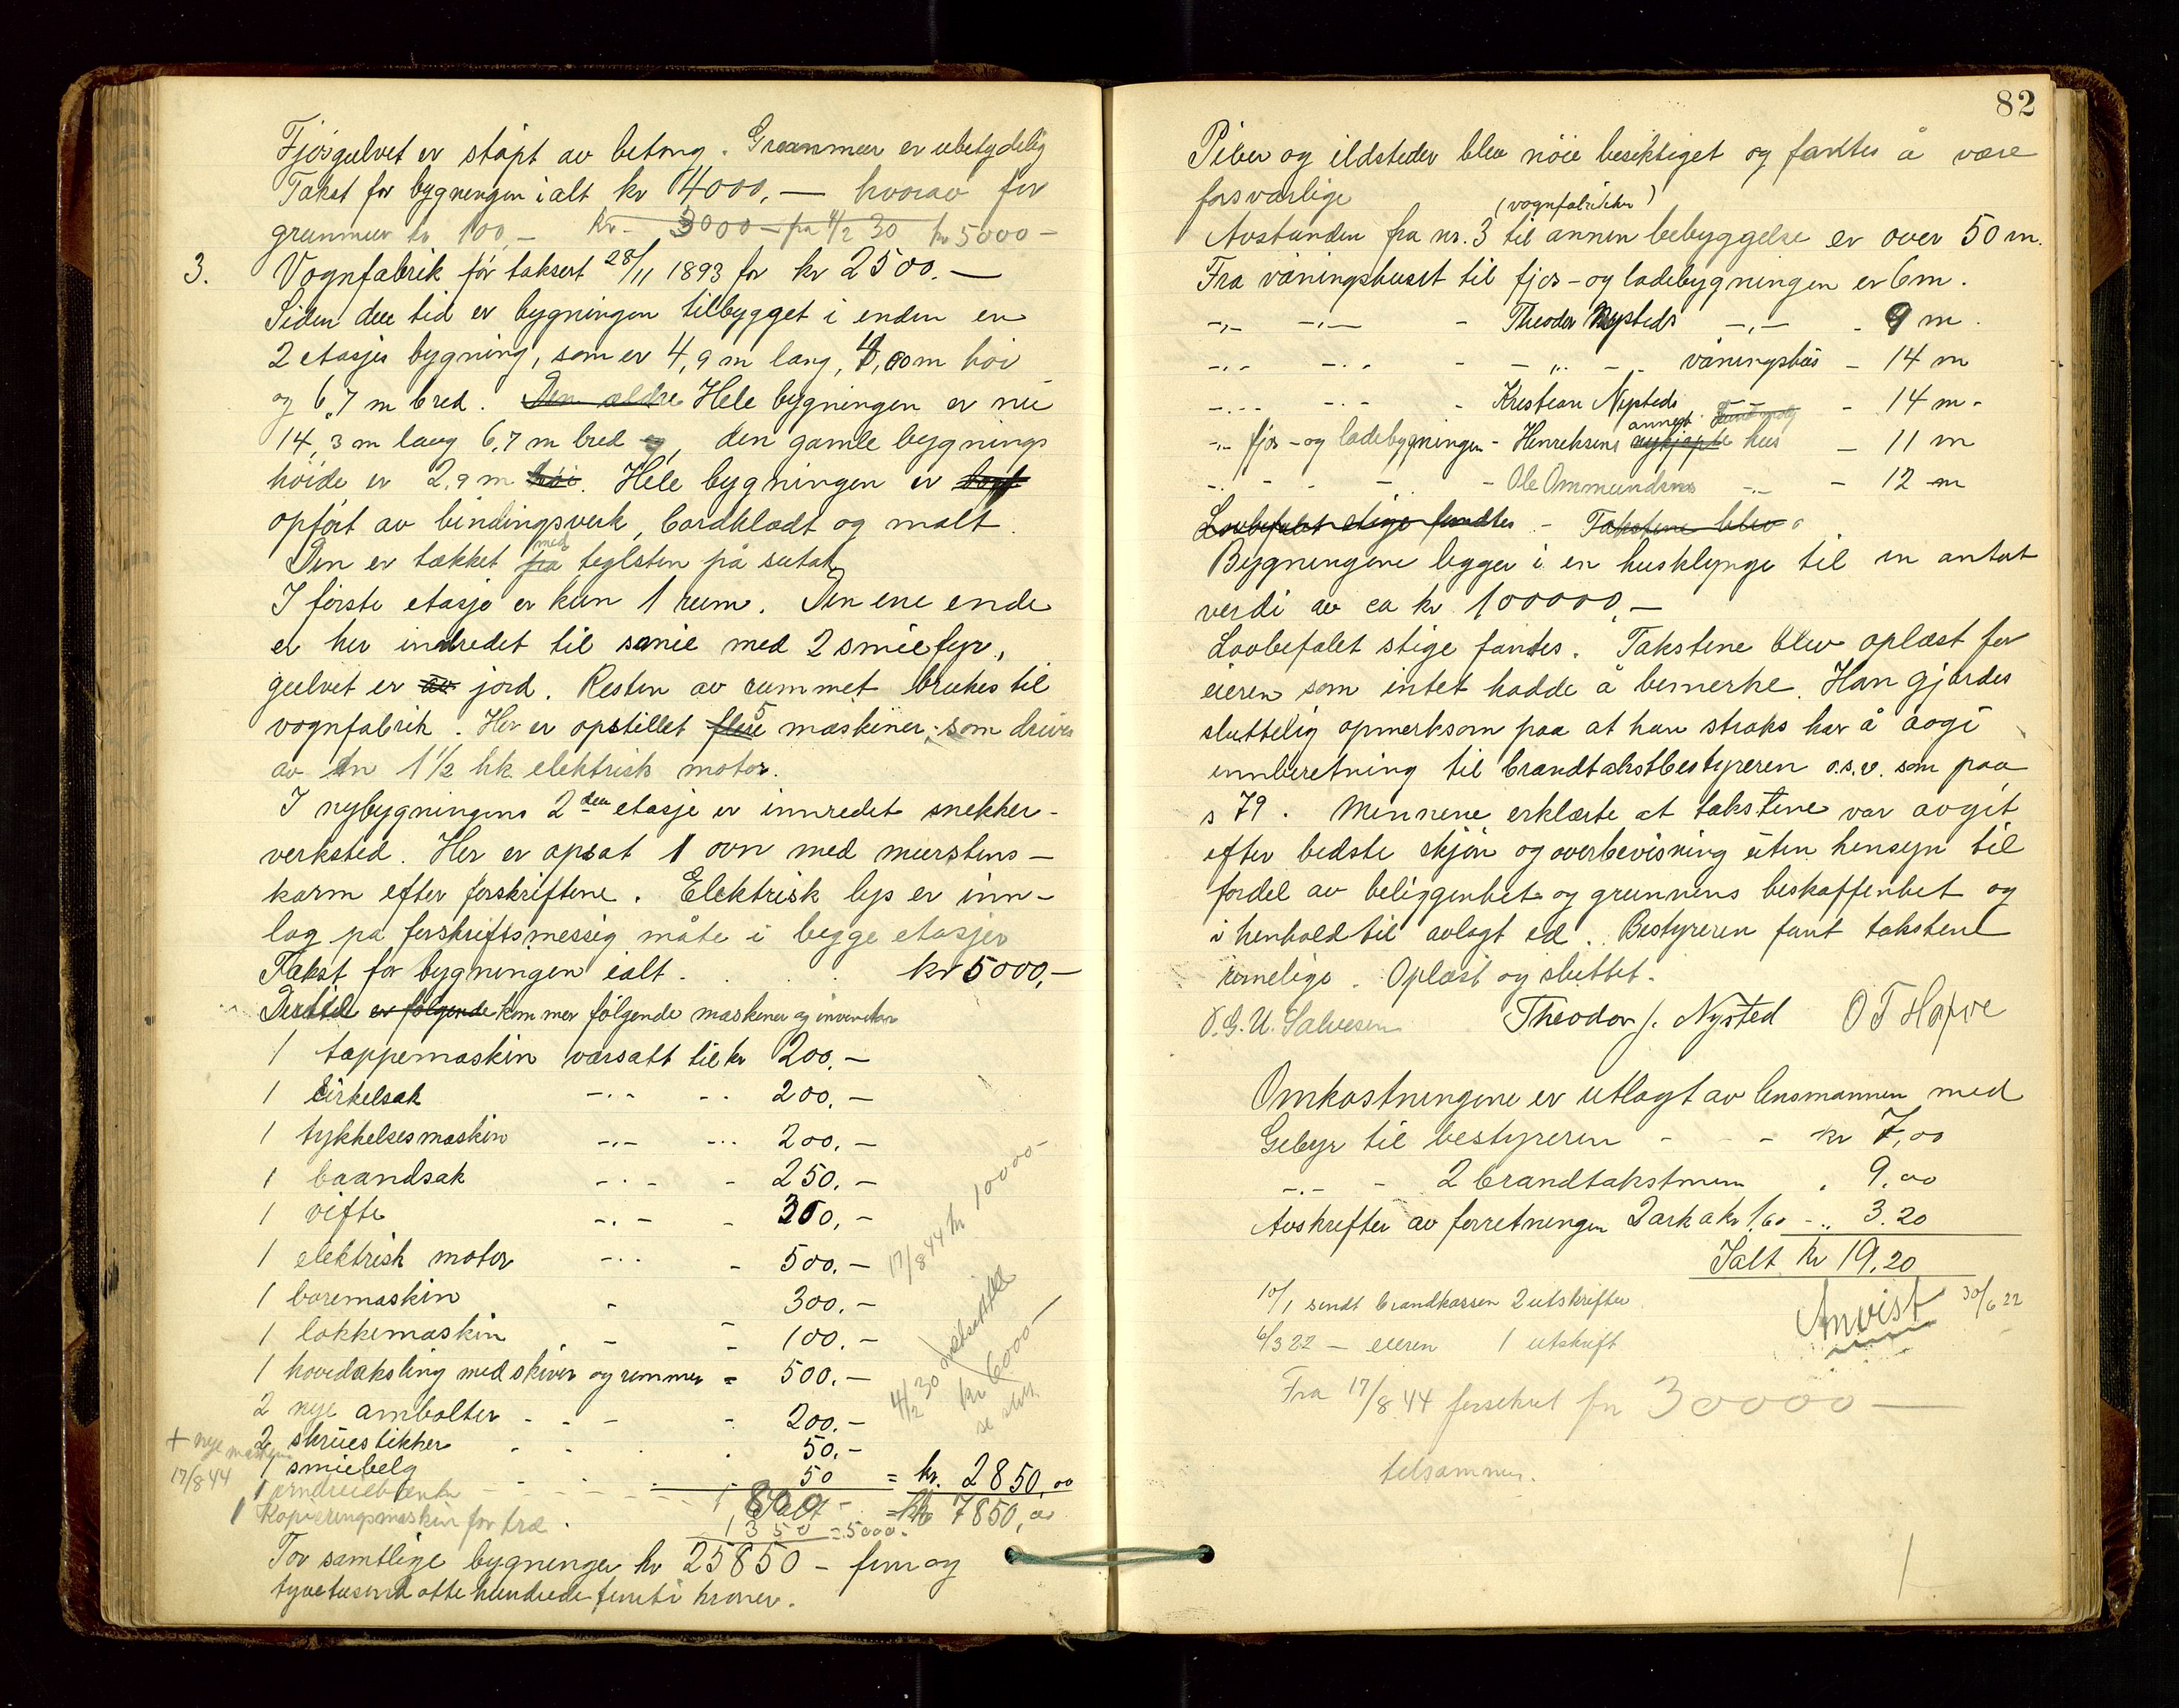 Fjøsgulvet er støpt av betong. Grunnmur er ubetydelig
Takst for bygningen ialt kr 4000,— hvorav for
grunnmur kr 100,— kr 3000 — fra 4/2 30 kr 5000 —
3. Vognfabrik før taksert 28/11 1893 for kr 2500.—
Siden den tid er bygningen tilbygget i enden en
2 etasjes bygning, som er 4,9 m lang, m høi
og 6,7 m bred. Den ældre Hele bygningen er nu
14,3 m lang 6,7 m bred og, den gamle bygnings
høide er 2,9 m høi. Hele bygningen er
opført av bindingsverk, bordklædt og malt.
Den er tækket fra med teglsten på sutak
I første etasje er kun 1 rum. Den ene ende
er her indredet til smie med 2 smiefyr,
gulvet er av jord. Resten av rummet brukes til
vognfabrik. Her er opstillet flere 5 maskiner, som drives
av en 1½ hk elektrisk motor.
I nybygningens 2den etasje er innredet snekker-
verksted. Her er opsat 1 ovn med murstens-
karm efter forskriftene. Elektrisk lys er inn-
lag på forskriftsmessig måte i begge etasjer
Takst for bygningen ialt . . . kr 5000,—
Dertil er følgende kommer følgende maskiner og inventar
1 tappemaskin værsatt til kr 200.—
1 Cirkelsak -.- -.- 200.—
1 tykkelsesmaskin -.- -.- 200.—
1 baandsak -.- - 250.—
1 vifte -.- - 300,—
1 elektrisk motor -.- - 500.—
1 boremaskin - 300.—
1 lokkemaskin - - 100.—
1 hovedaksling med skiver og remmer - 500.—
2 nye ambolter - - - 200.—
2 skruestikker 50.—
1 smiebelg 50 = kr. 2850,00
+ nye maskiner
17/8 44
1 jerndreiebenk - - - 800 -
Ialt = kr 7850,00
1 Kopieringsmaskin for træ.
1350 = 5000.
17/8 44 kr 10000-
4/2 30 nedsatt til
kr 6000—
se slutt
For samtlige bygninger kr 25850 — fem og
tyvetusend otte hundrede femti kroner.
82
Piber og ildsteder blev nöie besiktiget og fantes å være
forsvarlige
(vognfabrikken)
Avstanden fra nr. 3 til annen bebyggelse er over 50 m.
Fra våningshuset til fjøs- og ladebygningen er 6 m.
-.- -.- - Theodor Nysteds -.- - 9 m.
-.- -.- - -.- - våningshus - 14 m
-.- -.- - Kristian Nysteds - 14 m.
-.- fjøs- og ladebygningen - Henriksens nykjøpte annet hus - 11 m
-.- - - - Ole Ommundsens -.- - 12 m
Lovbefalet stige fandtes - Takstene blev
Bygningene ligger i en husklynge til en antat
verdi av ca kr 100000,—
Lovbefalet stige fandtes. Takstene blev oplæst for
eieren som intet hadde å bemerke. Han gjordes
sluttelig opmerksom paa at han straks har å avgi
innberetning til brandtakstbestyreren o.s.v. som paa
s 79. Mennene erklærte at takstene var avgit
efter bedste skjøn og overbevisning uten hensyn til
fordel av beliggenhet og grunnens beskaffenhet og
i henhold til avlagt ed. Bestyreren fant takstene
rimelige. Oplæst og sluttet.
O.G.U. Salvesen Theodor J. Nysted O T Hafve
Omkostningene er utlagt av lensmannen med
Gebyr til bestyreren - - - kr 7,00
-.- - 2 brandtakstmenn . 9,00
Avskrifter av forretningen 2 ark a kr 1,60 -.. 3.20
Ialt kr 19,20
10/1 sendt brandkassen 2 utskrifter
6/3 22 — eieren 1 utskrift
Anvist 30/6 22
Fra 17/8 44 forsikret for 30000—
tilsammen.